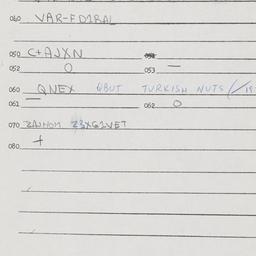 040 VAR-FD1RAL
050 C+AJXN
052 0 053 —
060 QNEX QBUT TURKISH NUTS
061 — 062 0
070 ZAJHOM Z3XG1VET
080 +